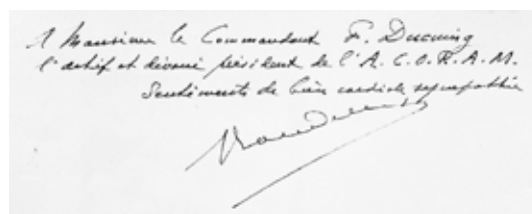 A Monsieur le Commandant F. Ducuing
l'actif et dévoué président de l'A.C.O.R.A.M.
Sentiments de bien cordiale sympathie